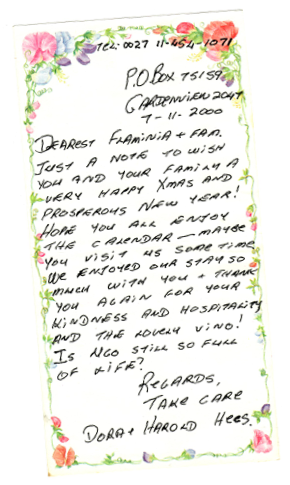 TEL: 0027 11-454-1071
P.O BOX 75159
GARDENVIEW 2047
7-11-2000
DEAREST FLAMINIA + FAM.
JUST A NOTE TO WISH
YOU AND YOUR FAMILY A
VERY HAPPY XMAS AND
PROSPEROUS NEW YEAR!
HOPE YOU ALL ENJOY
THE CALENDAR — MAYBE
YOU VISIT US SOME TIME
WE ENJOYED OUR STAY SO
MUCH WITH YOU + THANK
YOU AGAIN FOR YOUR
KINDNESS AND HOSPITALITY
AND THE LOVELY VINO!
IS UGO STILL SO FULL
OF LIFE?
REGARDS,
TAKE CARE
DORA + HAROLD HEES.